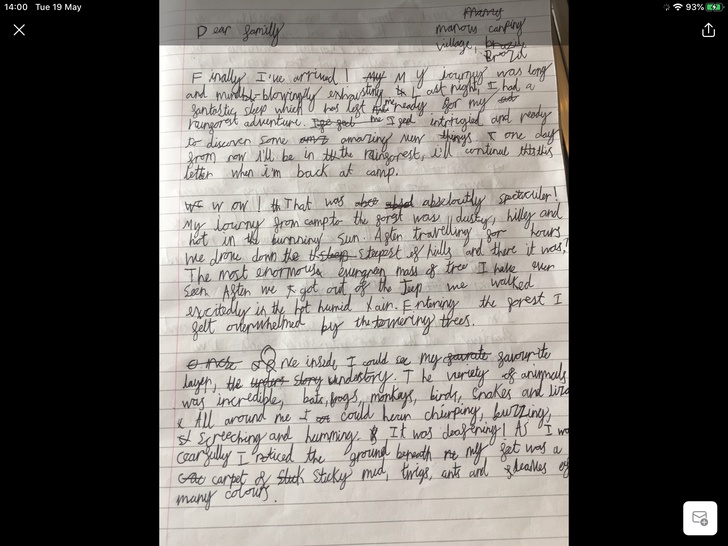 14:00 Tue 19 May
93%
Manos
Dear family
manous camping
village, brazile
Brazil
Finally I've arrived! My M y journy was long
and mindbl-blowingly exhausting. Last night, I had a
fantastic sleep which has left me ready for my
rainforest adventure. I feel intrigued and ready
to discover some amazing new things. one day
from now i'll be in the rainforest, i'll continue this
letter when i'm back at camp.
W wow! th That was absoloutly spectculer!
My journy from camp to the forst was dusty, hilly and
hot in the burnning sun. After travelling for hours
we drove down the steepest of hills and there it was!
The most enormous evergreen mass of tree I have ever
seen. After we got out of the Jeep we walked
excitedly in the hot humid rain. Entering the forest I
felt overwhelmed by the towering trees.
Once inside, I could see my favourite
layer, the understory. The variety of animals
was incredible, bats, frogs, monkeys, birds, snakes and
All around me I could hear chirping, buzzing,
screeching and humming. It was deafening! As I
carefully I noticed the ground beneath my feet was a
carpet of stick sticky mud, twigs, ants and
many colours.